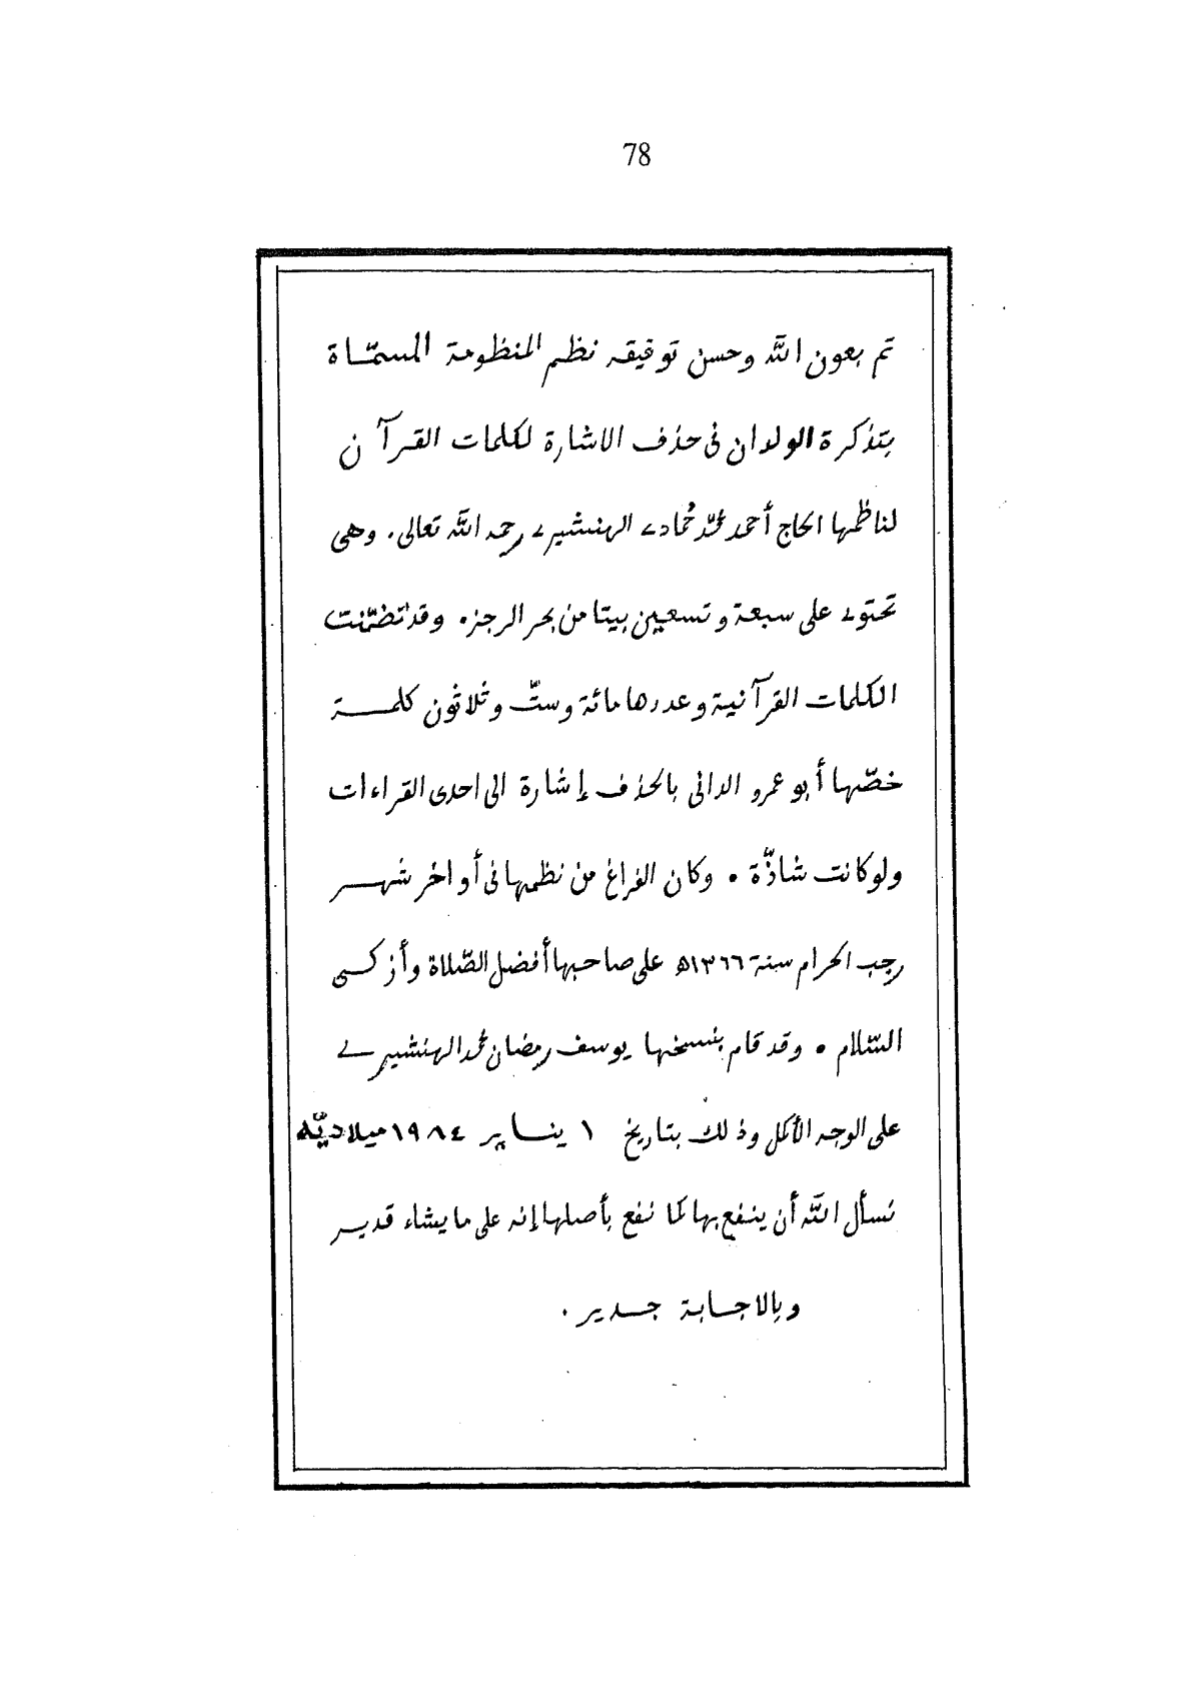 78
تم بعون الله وحسن توفيقه نظم المنظومة المسمّاة
بتذكرة الولدان فى حذف الاشارة لكلمات القرآن
لناظمها الحاج أحمد محمّد حُمادى الهنشيرى رحمه الله تعالى. وهى
تحتوى على سبعة وتسعين بيتا من بحر الرجز. وقد تضمّنت
الكلمات القرآنية وعددها مائة وستّ وثلاثون كلمة
خصّها أبو عمرو الدانى بالحذف إشارة الى احدى القراءات
ولو كانت شاذّة. وكان الفراغ من نظمها فى أواخر شهر
رجب الحرام سنة ١٣٦٦ه على صاحبها أفضل الصّلاة وأزكى
السّلام. وقد قام بنسخها يوسف رمضان محمد الهنشيرى
على الوجه الأكمل وذلك بتاريخ ١ يناير ١٩٨٤ ميلاديّه
نسأل الله أن ينفع بها كما نفع بأصلها إنه على ما يشاء قدير
وبالاجابة جدير.